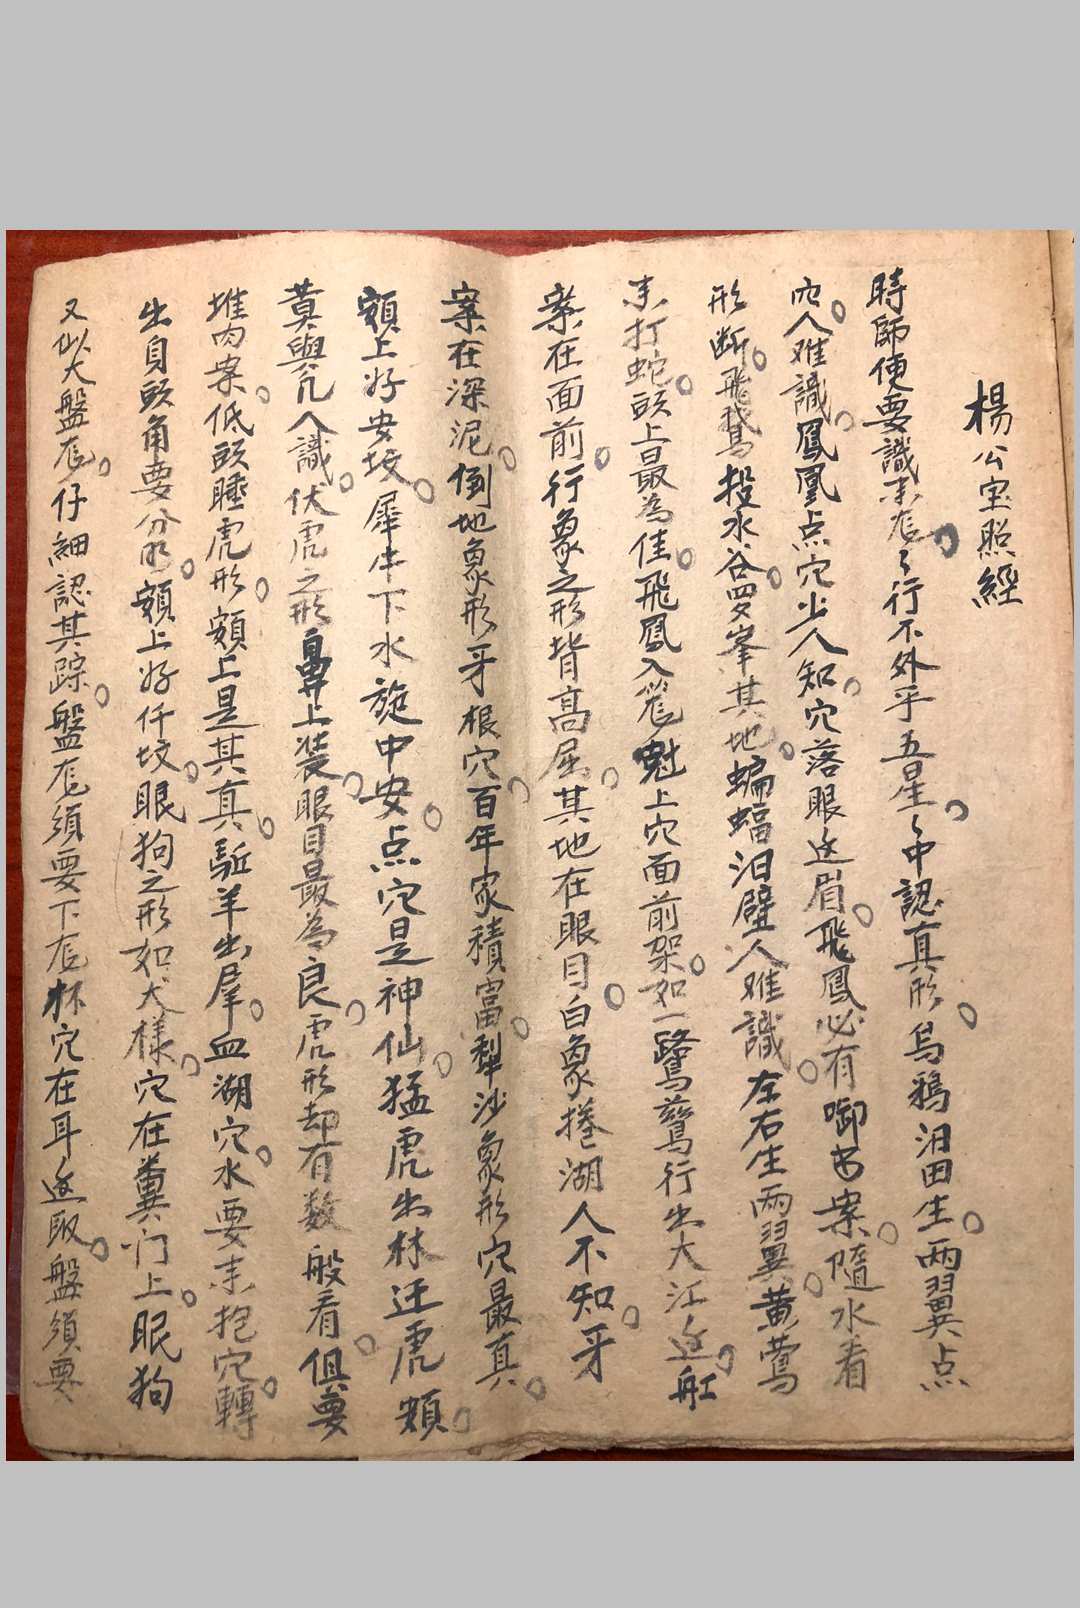 楊公宝照經
時師使要識來尨〻行不外乎五星〻中認真形烏鴉汨田生两翼点
穴人难識鳳凰点穴少人知穴落眼边眉飛鳳必有啣书案隨水看
形断飛鵝投水谷四峯其地蝙蝠汨壁人难識左右生两翼黄鶯
來打蛇頭上最為佳飛鳳入笼魁上穴面前架如一鷺鷥行出大江边舡
案在面前行象之形背高屈其地在眼目白象捲湖人不知牙
案在深泥倒地象形牙根穴百年家積富犁沙象形穴最真
額上好安坟犀牛下水施中安点穴是神仙猛虎出林迋虎額
莫與凡人識伏虎之形鼻上装眼目最為良虎形却有数般看俱要
堆肉案低頭睡虎形額上是其真駈羊出羣血湖穴水要來抱穴轉
出身頭角要分明額上好仟坟眠狗之形如犬樣穴在糞门上眠狗
又似大盤尨仔細認其踪盤尨須要下尨杯穴在耳边取盤須要